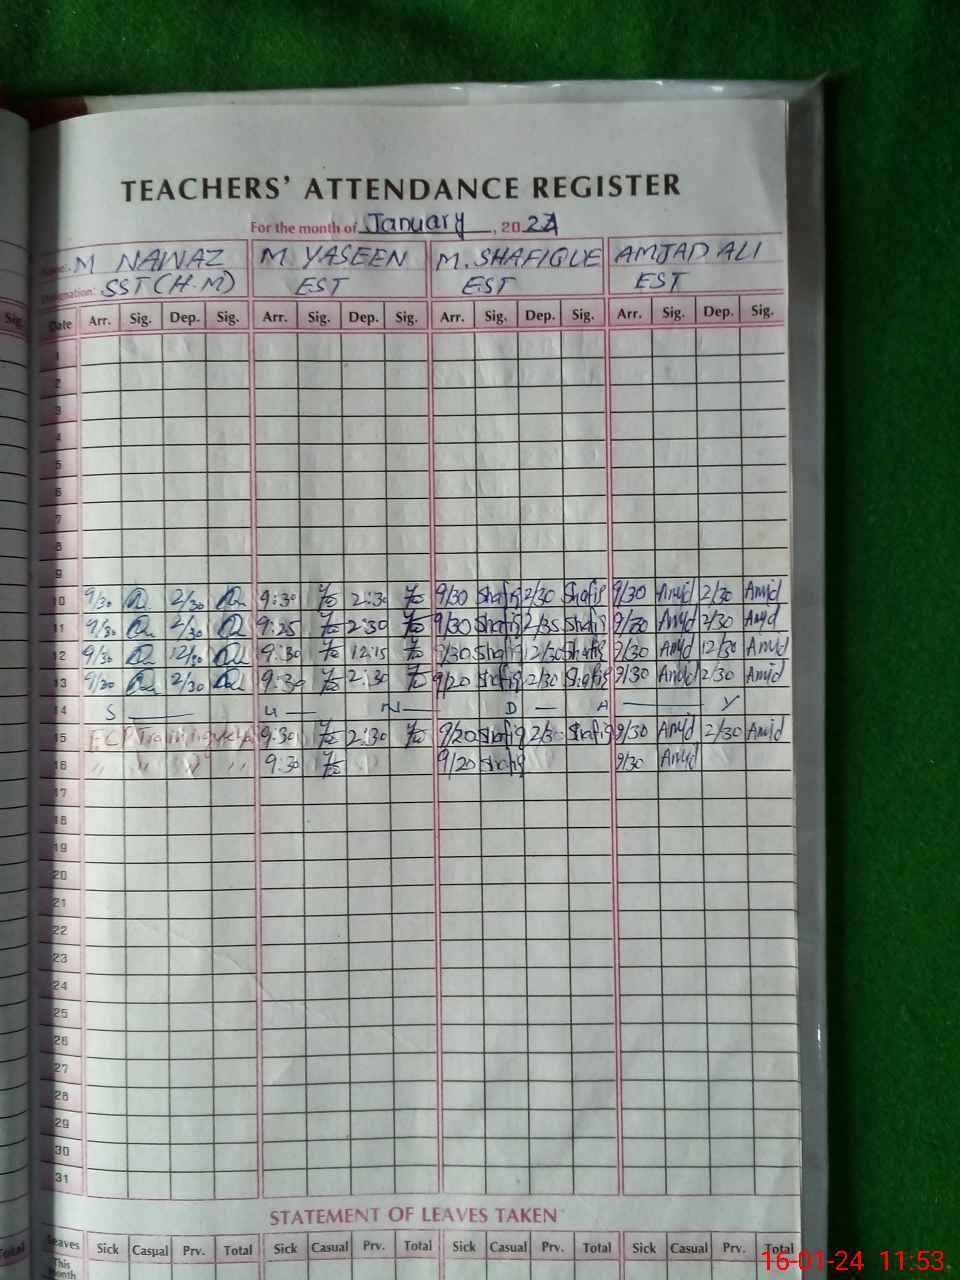 TEACHERS' ATTENDANCE REGISTER
For the month of January, 2024
Name: M NAWAZ M YASEEN M. SHAFIQUE AMJAD ALI
Designation: SST (H.M) EST EST EST
Sig. Date Arr. Sig. Dep. Sig. Arr. Sig. Dep. Sig. Arr. Sig. Dep. Sig. Arr. Sig. Dep. Sig.
1
2
3
4
5
6
7
8
9
10 9/30 2/30 9:30 2:30 9/30 Shafiq 2/30 Shafiq 9/30 Amjd 2/30 Amjd
11 9/30 2/30 9:25 2:30 9/30 Shafiq 2/35 Shafiq 9/30 Amjd 2/30 Amjd
12 9/30 12/30 9:30 12:15 9/30 Shafiq 12/30 Shafiq 9/30 Amjd 12/30 Amjd
13 9/20 2/30 9:30 2:30 9/20 Shafiq 2/30 Shafiq 9/30 Amjd 2/30 Amjd
14 S — U — N — D — A — Y
15 Training 9:30 2:30 9/20 Shafiq 2/30 Shafiq 9/30 Amjd 2/30 Amjd
16 " " " " 9:30 9/20 Shafiq 9/30 Amjd
17
18
19
20
21
22
23
24
25
26
27
28
29
30
31
STATEMENT OF LEAVES TAKEN
Total Leaves Sick Casual Prv. Total Sick Casual Prv. Total Sick Casual Prv. Total Sick Casual Prv. Total
This Month
16-01-24 11:53